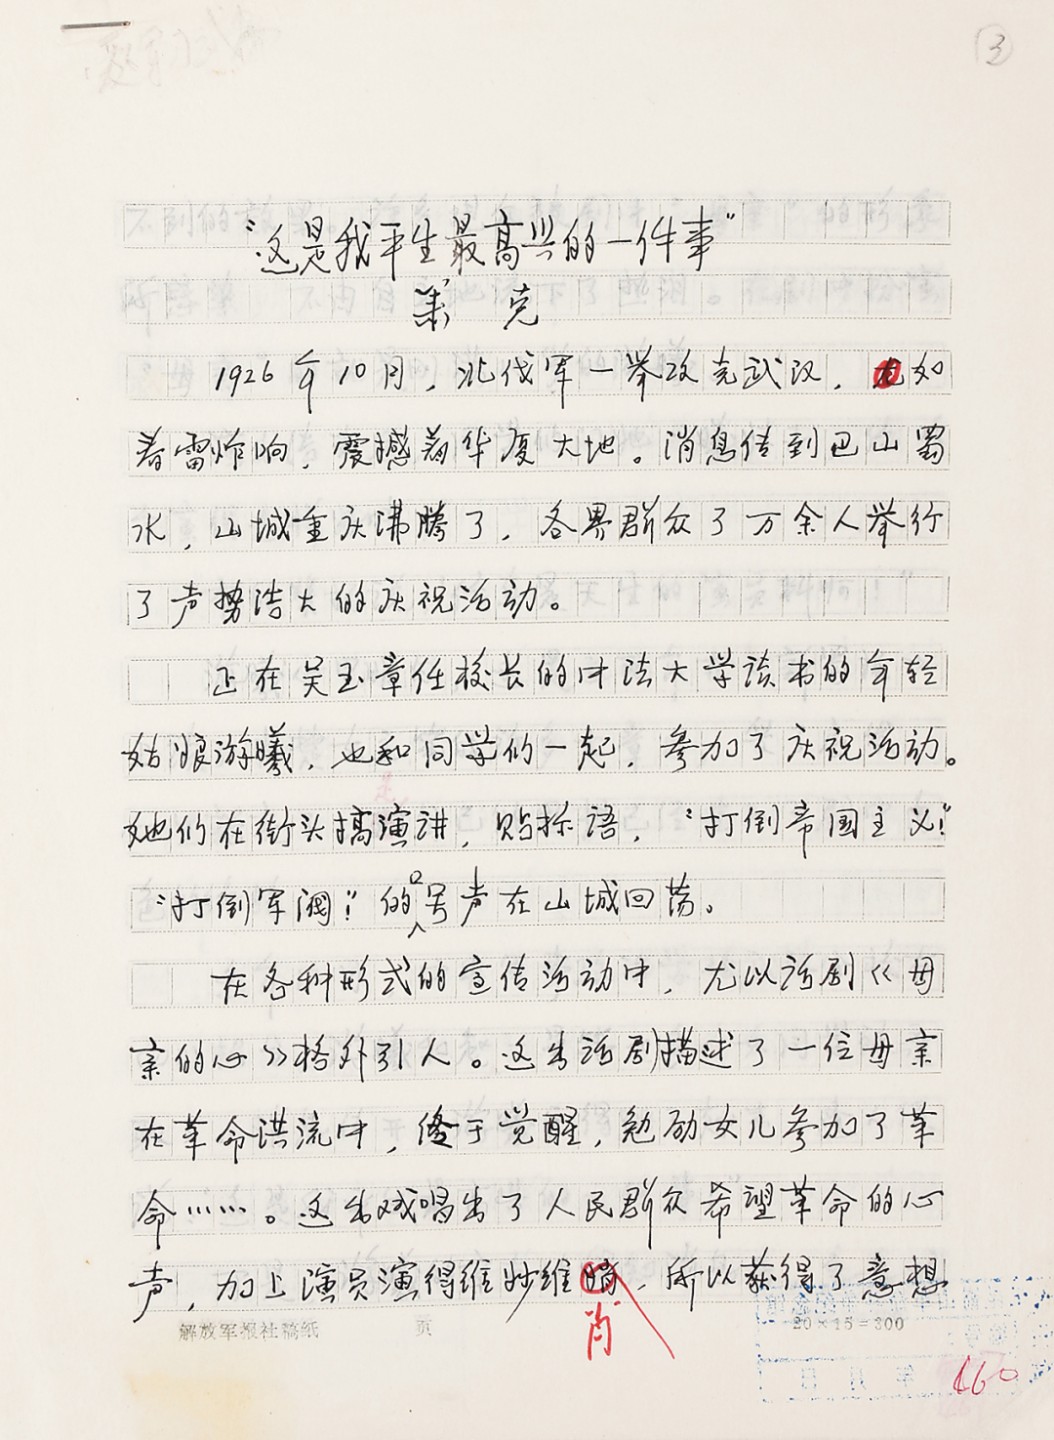 ③
“这是我平生最高兴的一件事”
萧 克
1926年10月，北伐军一举攻克武汉，尤如
春雷炸响，震撼着华夏大地。消息传到巴山蜀
水，山城重庆沸腾了，各界群众了万余人举行
了声势浩大的庆祝活动。
正在吴玉章任校长的中法大学读书的年轻
姑娘游曦，也和同学们一起，参加了庆祝活动。
她们在街头搞演讲，贴标语，“打倒帝国主义！”
“打倒军阀！”的口号声在山城回荡。
在各种形式的宣传活动中，尤以话剧《母
亲的心》格外引人。这出话剧描述了一位母亲
在革命洪流中，终于觉醒，勉励女儿参加了革
命……。这出戏唱出了人民群众希望革命的心
声，加上演员演得维妙维肖，所以获得了意想
解放军报社稿纸 页 20×15=300
年 月 日
160